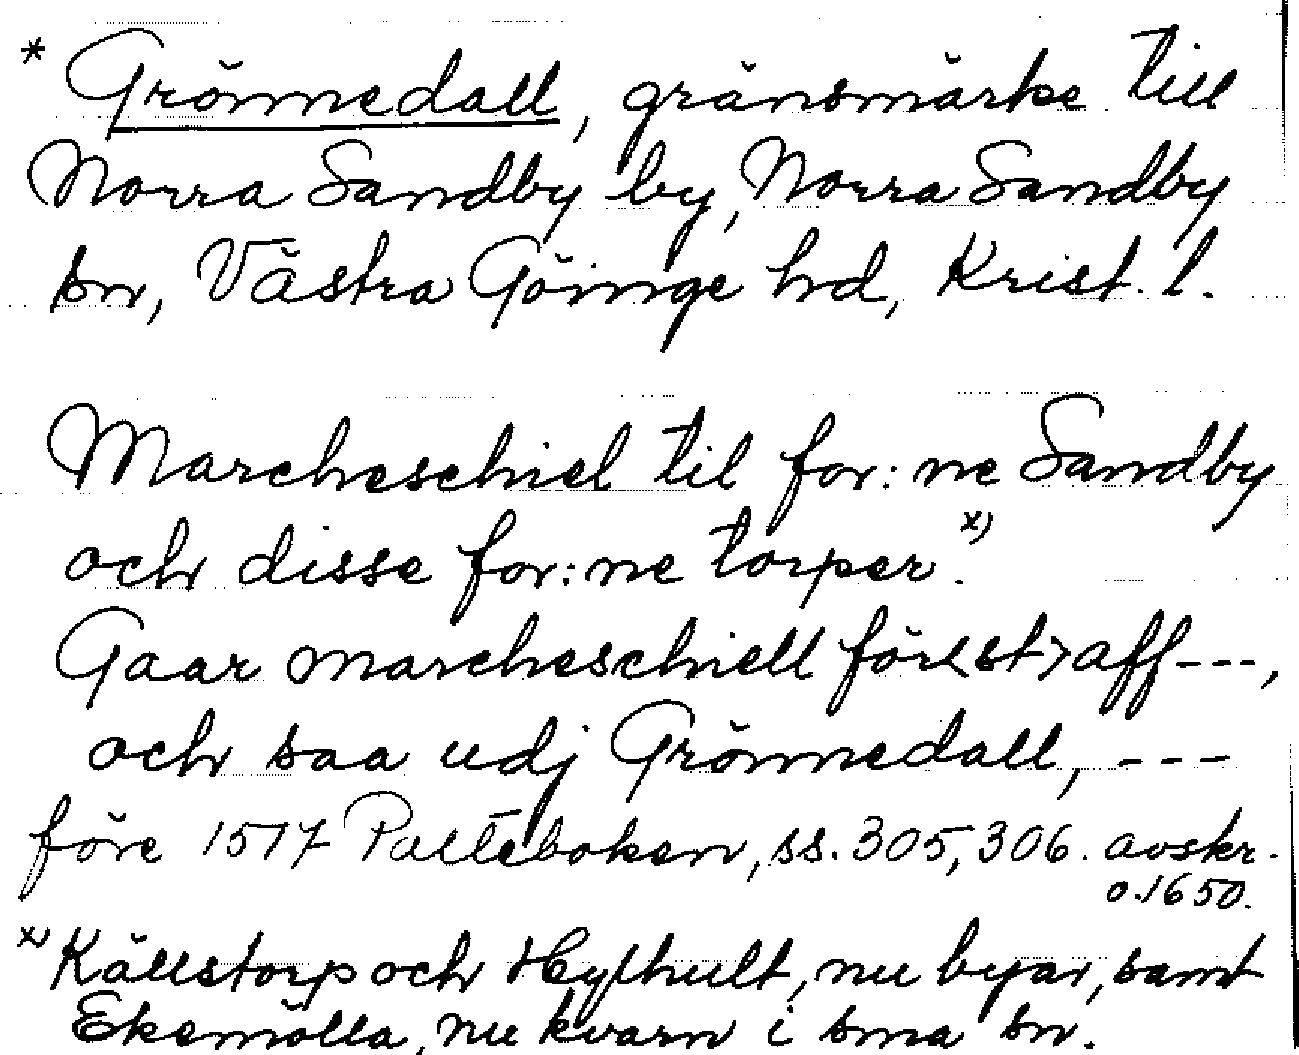 * Grönnedall, gränsmärke till
Norra Sandby by, Norra Sandby
sn, Västra Göinge hd, Krist. l.
Marcheschiel til for:ne Sandby
och disse for:ne torper.x)
Gaar marcheschiell för<st> aff ---,
och saa udj Grönnedall, ---
före 1517 Palteboken, ss. 305, 306. avskr.
o. 1650.
x) Källstorp och Hylhult, nu byar, samt
Ekemölla, nu kvarn i sma sn.